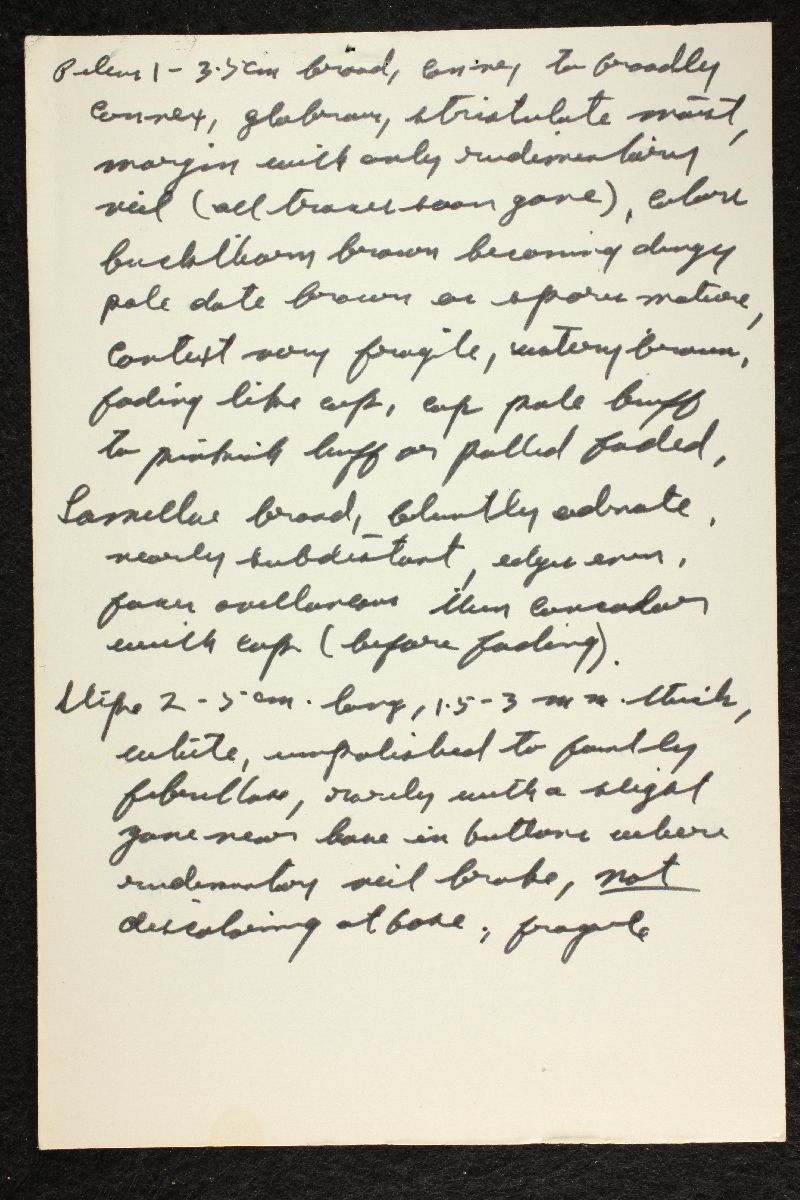 Pileus 1 - 3.5 cm broad, convex to broadly
convex, glabrous, striatulate moist,
margin with only rudimentary
veil (all traces soon gone), colors
buckthorn brown becoming dingy
pale date brown as spores mature,
Context very fragile, watery brown,
fading like cap, cap pale buff
to pinkish buff or pallid faded,
Lamellae broad, bluntly adnate,
nearly subdistant, edges even,
faces avellaneous then concolor
with cap (before fading).
Stipe 2 - 5 cm. long, 1.5 - 3 mm. thick,
white, unpolished to faintly
fibrillose, rarely with a slight
zone near base in buttons where
rudimentary veil broke, not
discoloring at base, fragile